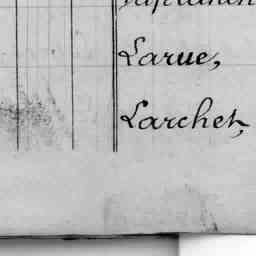 Larue,
Larchet,